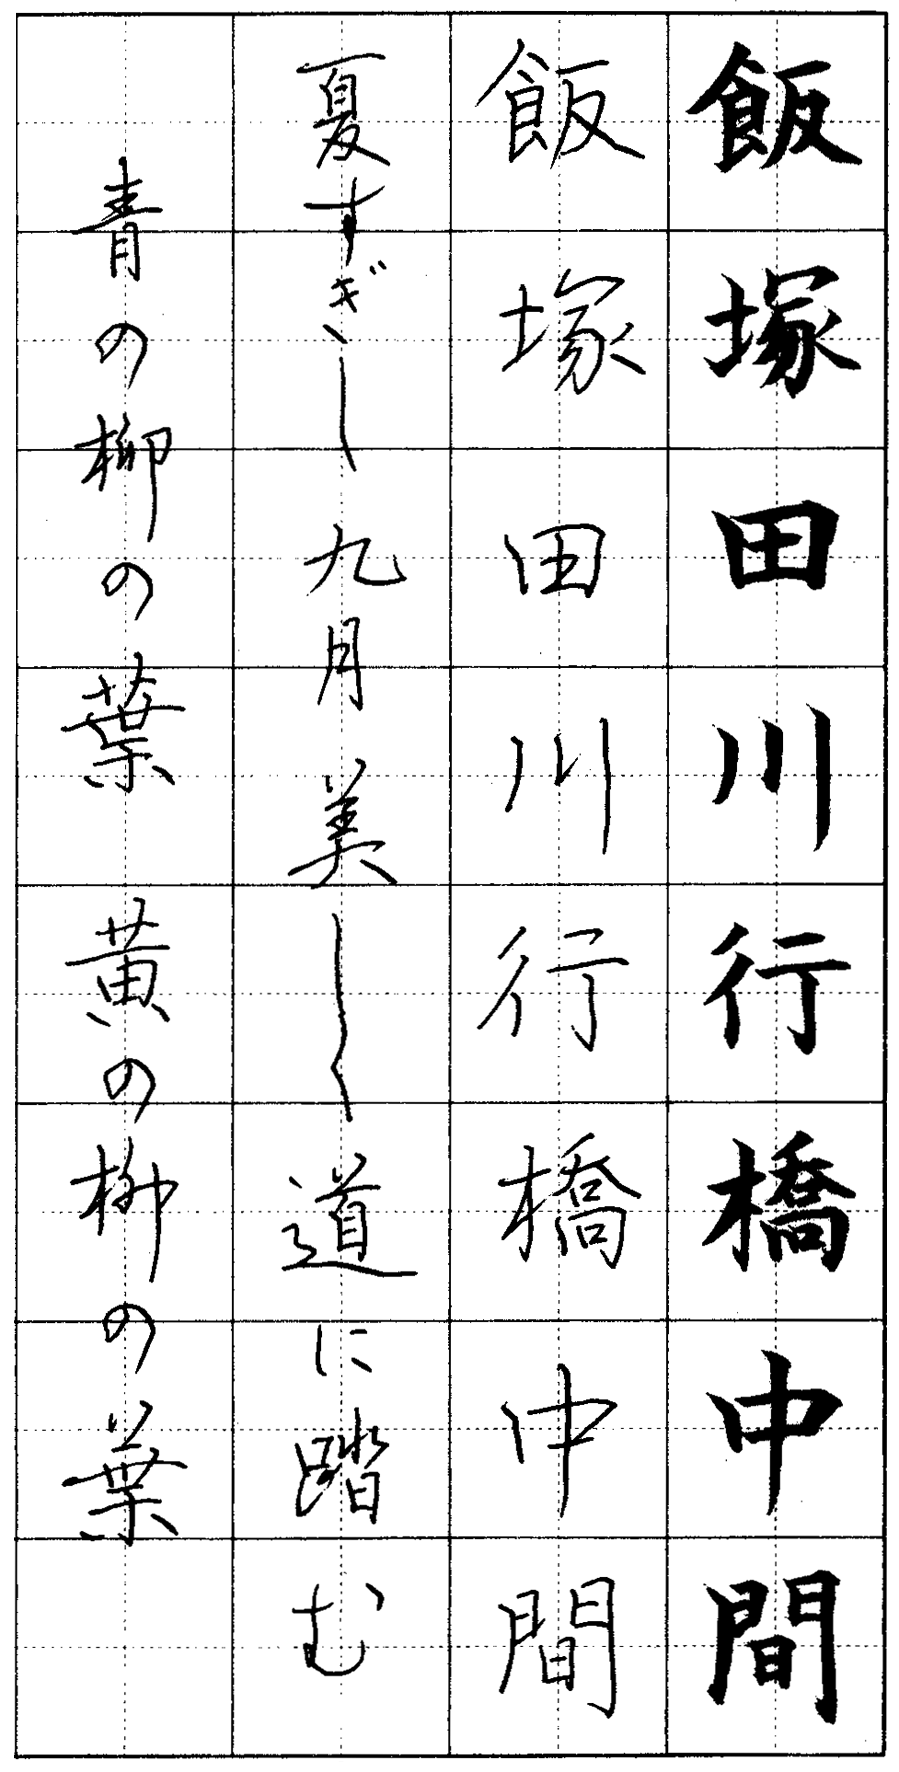 飯塚田川行橋中間
飯塚田川行橋中間
夏すぎし九月美しく道に踏む
青の柳の葉黄の柳の葉